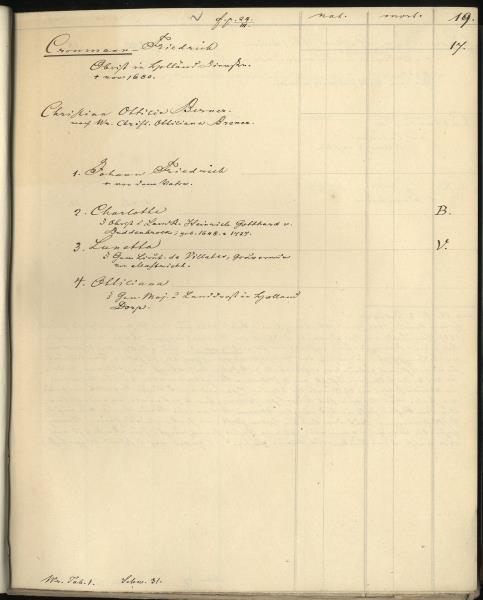 nat. mort. 19.
Cronmann Friedrich 17.
Obrist in Holländ. Diensten.
† vor 1680.
Christina Ottilia Berner.
nach Wr. Christ. Ottiliana Brener.
1. Johann Friedrich
† vor dem Vater.
2. Charlotte B.
Obrist u. Landr. Heinrich Gotthard v.
Buddenbrock; geb. 1648. † 1727.
3. Lunetta V.
Gen. Lieut. de Villates, Gouverneur
von Mastricht.
4. Ottiliana
Gen. Maj. u. Landdrost in Holland
Dorp.
Wr. Tab. 1. Schw. 31.